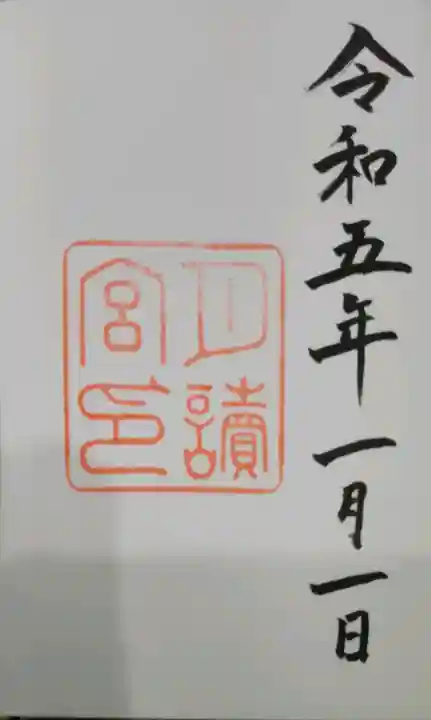 令和五年一月一日
月讀
宮印